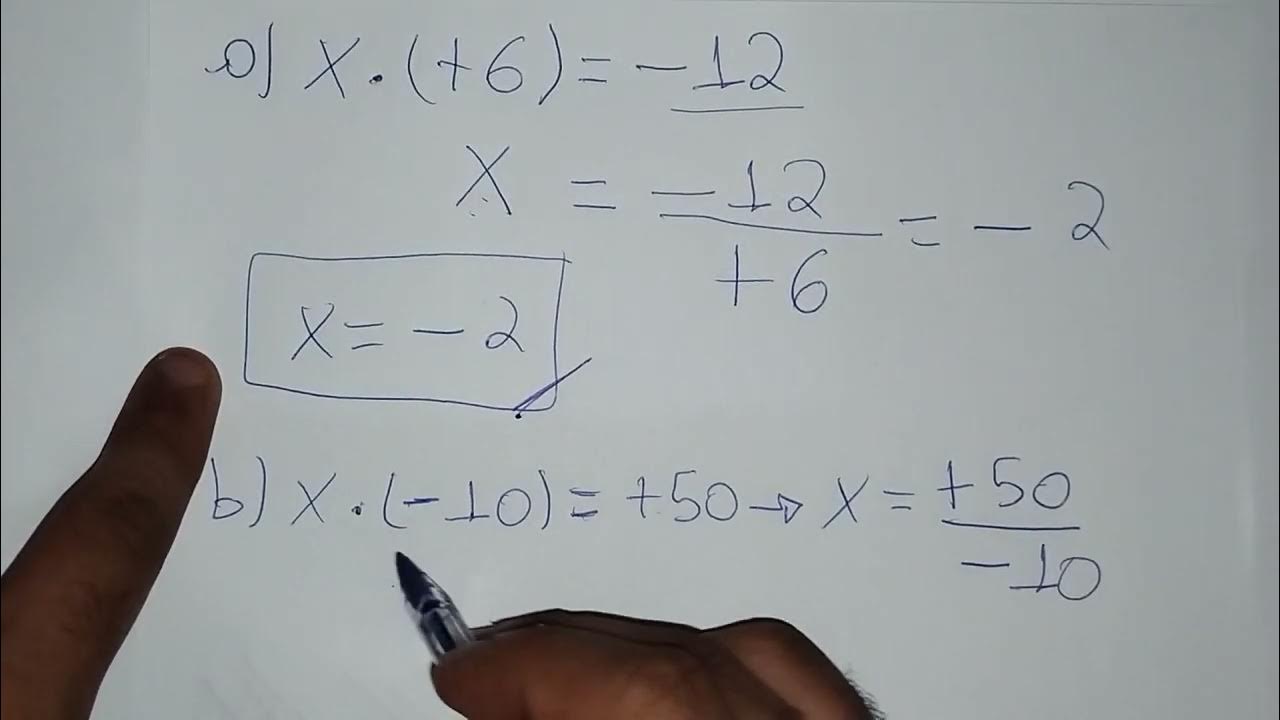 a) x . (+6) = -12
x = -12/+6 = -2
x = -2
b) x . (-10) = +50 → x = +50/-10